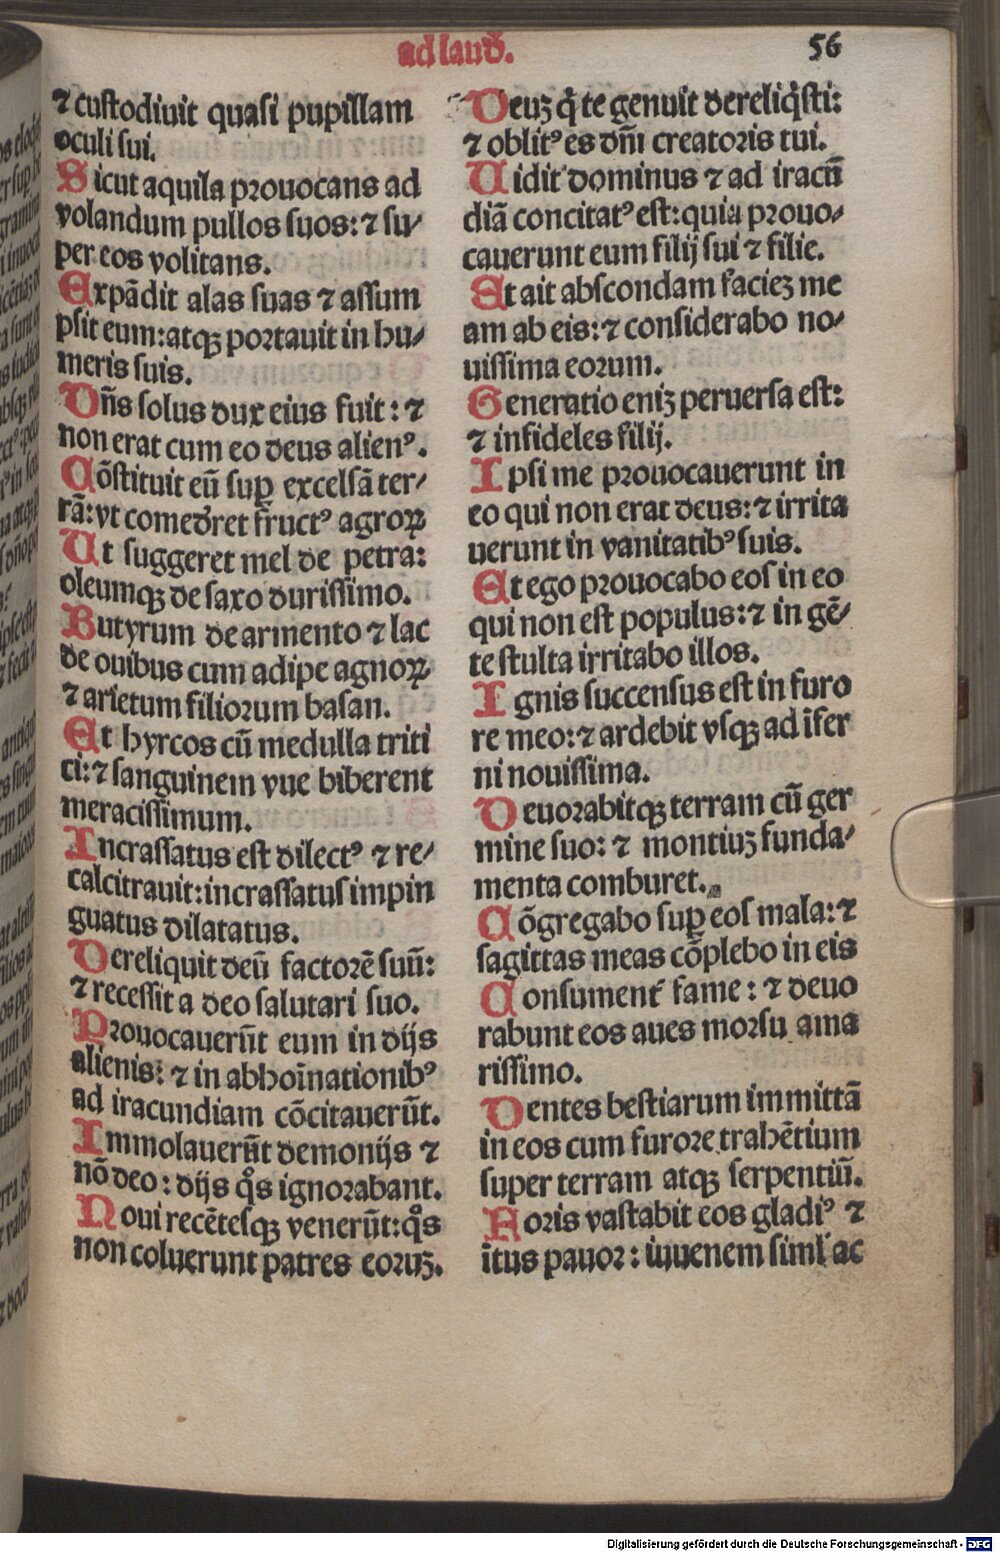 ad laud̄.
56
⁊ custodiuit quasi pupillam
oculi sui.
Sicut aquila prouocans ad
volandum pullos suos: ⁊ su/
per eos volitans.
Expādit alas suas ⁊ assum
psit eum: atqꝫ portauit in hu/
meris suis.
Dn̄s solus dux eius fuit: ⁊
non erat cum eo deus alienꝰ.
Cōstituit eū suꝑ excelsā ter/
rā: vt comed̄ret fructꝰ agroꝝ
Ut suggeret mel de petra:
oleumqꝫ de saxo durissimo.
Butyrum de armento ⁊ lac
de ouibus cum adipe agnoꝝ
⁊ arietum filiorum basan.
Et hyrcos cū medulla triti
ci: ⁊ sanguinem vue biberent
meracissimum.
Incrassatus est dilectꝰ ⁊ re/
calcitrauit: incrassatus impin
guatus dilatatus.
Dereliquit deū factorē suū:
⁊ recessit a deo salutari suo.
Prouocauerūt eum in dijs
alienis: ⁊ in abhoīnationibꝰ
ad iracundiam cōcitauerūt.
Immolauerūt demonijs ⁊
nō deo: dijs qͦs ignorabant.
Noui recētesqꝫ venerūt: qͦs
non coluerunt patres eoruꝫ.
Deuꝫ q̄ te genuit dereliq̇sti:
⁊ oblitꝰ es dn̄i creatoris tui.
Uidit dominus ⁊ ad iracū
diā concitatꝰ est: quia prouo/
cauerunt eum filij sui ⁊ filie.
Et ait abscondam facieꝫ me
am ab eis: ⁊ considerabo no/
uissima eorum.
Generatio eniꝫ peruersa est:
⁊ infideles filij.
Ipsi me prouocauerunt in
eo qui non erat deus: ⁊ irrita
uerunt in vanitatibꝰ suis.
Et ego prouocabo eos in eo
qui non est populus: ⁊ in gē/
te stulta irritabo illos.
Ignis succensus est in furo
re meo: ⁊ ardebit vsqꝫ ad īfer
ni nouissima.
Deuorabitqꝫ terram cū ger
mine suo: ⁊ montiuꝫ funda/
menta comburet.
Cōgregabo suꝑ eos mala: ⁊
sagittas meas cōplebo in eis
Consument̄ fame: ⁊ deuo
rabunt eos aues morsu ama
rissimo.
Dentes bestiarum immittā
in eos cum furore trahētium
super terram atqꝫ serpentiū.
Foris vastabit eos gladiꝰ ⁊
ītus pauor: iuuenem siml̄ ac
Digitalisierung gefördert durch die Deutsche Forschungsgemeinschaft - DFG